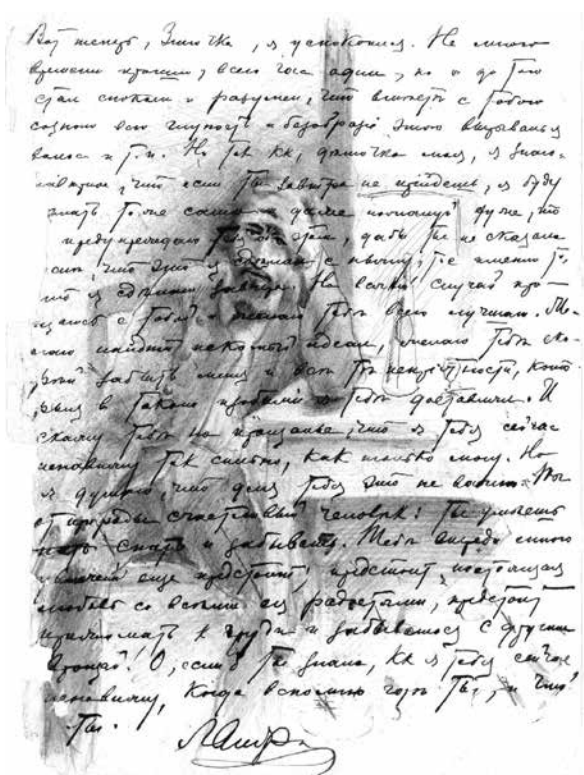 Вот теперь, Зиночка, я успокоился. Не много
времени прошло, всего часа один, но я до того
стал спокоен и разумен, что вместе с тобою
сознаю всю глупость и безобразие этого вырыванья
волос и т.п. Но так кк, деточка моя, я знаю
наверное, что если ты завтра не придешь, я буду
то же самое и даже пожалуй хуже, то
предупреждаю тебя об этом, дабы ты не сказала
что это я сделал с пьяну, т.е. именно то
что я завтра. На всякий случай про-
щаюсь с тобой и желаю тебе всего лучшего. Же-
лаю идеал, желаю тебе ско-
рей забыть меня и все те неприятности, кото-
рыя в таком изобилии я тебе доставлял. И
скажу тебе на прощанье, что я тебя сейчас
ненавижу так сильно, как только могу. Но
я думаю, что для тебя это не важно. Ты
от природы счастливый человек: ты умеешь
спать и забывать. Тебе впереди много
еще предстоит; предстоит настоящая
любовь со всеми ея радостями, предстоит
прижимать к груди и забываться с другим
О, если б ты знала, кк я тебя сейчас
ненавижу, когда вспомню ты, и что
ты.